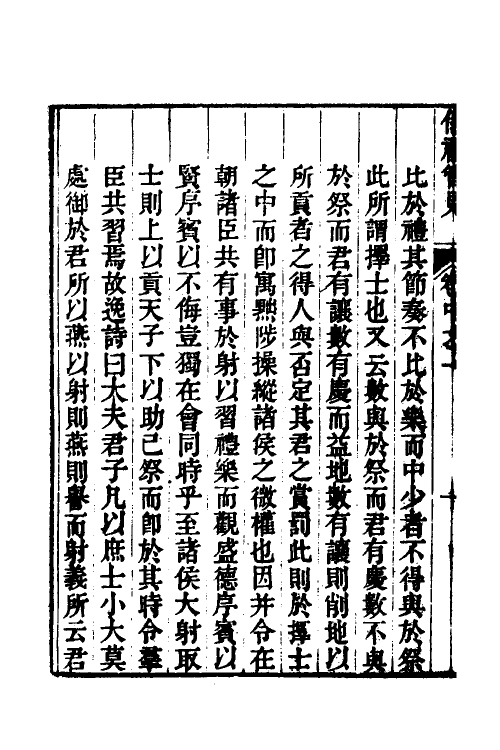 比於禮其節奏不比於樂而中少者不得與於祭
此所謂擇士也又云數與於祭而君有慶數不與
於祭而君有讓數有慶而益地數有讓則削地以
所貢者之得人與否定其君之賞罰此則於擇士
之中而卽寓黜陟操縱諸侯之微權也因并令在
朝諸臣共有事於射以習禮樂而觀盛德序賓以
賢序賓以不侮豈獨在會同時乎至諸侯大射取
士則上以貢天子下以助己祭而卽於其時令羣
臣共習焉故逸詩曰大夫君子凡以庶士小大莫
處御於君所以燕以射則燕則譽而射義所云君